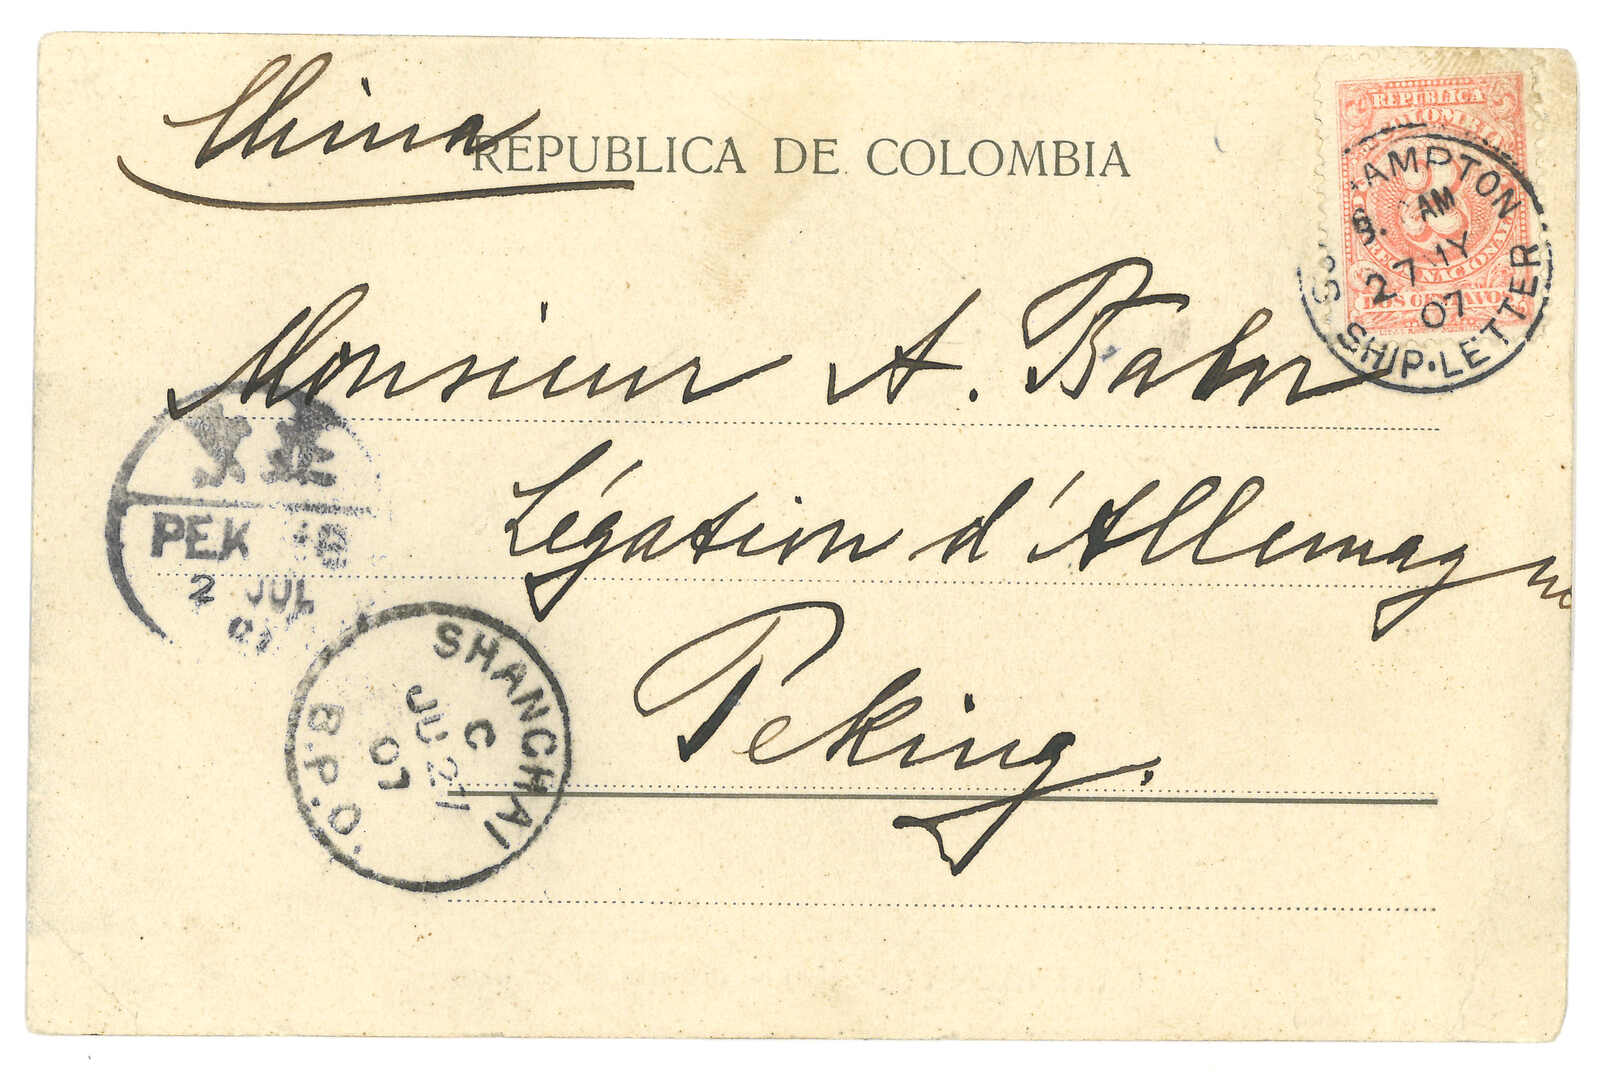 China
REPUBLICA DE COLOMBIA
REPUBLICA
COLOMBIA
2
NACIONAL
DOS CENTAVOS
SOUTHAMPTON
AM
27 MY
07
SHIP·LETTER
Monsieur A. Bahr
Légation d'Allemagne
Peking.
PEK
2 JUL
07
SHANGHAI
C
JU 27
07
B.P.O.